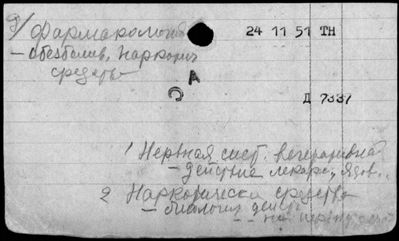 9/ Фармакология
24 11 51 ТН
— обезболив. Наркотич
средства
СА
Д 7337
1 Нервная сист. вегетативная
— действие лекарс., ядов.
2 Наркотическ средства
— биологич действ
— на